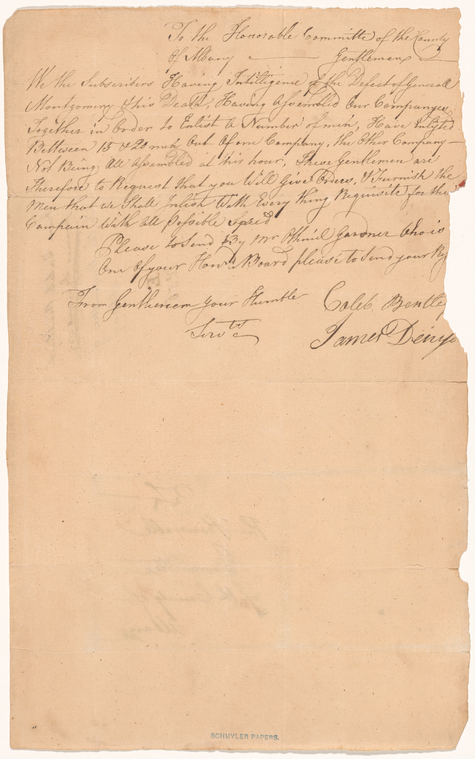 To the Honorable Committee of the County
of Albany Gentlemen
We the Subscribers Having Intelligence of the Defect of Generall
Montgomery & his Death, Having Assembled Our Companyes
Together in Order to Enlist a Number of men, Have enlisted
Between 15 & 20 men Out of one Company, the Other Company
Not Being All Assembled at this hour, These Gentlemen are
Therefore to Request that you Will Give Orders, & Furnish the
Men that we Shall Inlist With Every thing Requisite for the
Campain with all Possible Speed
Please to Send By Mr Gardner Who is
One of your Board please to Send your
From Gentlemen your Humble Caleb
Servts James
SCHUYLER PAPERS.